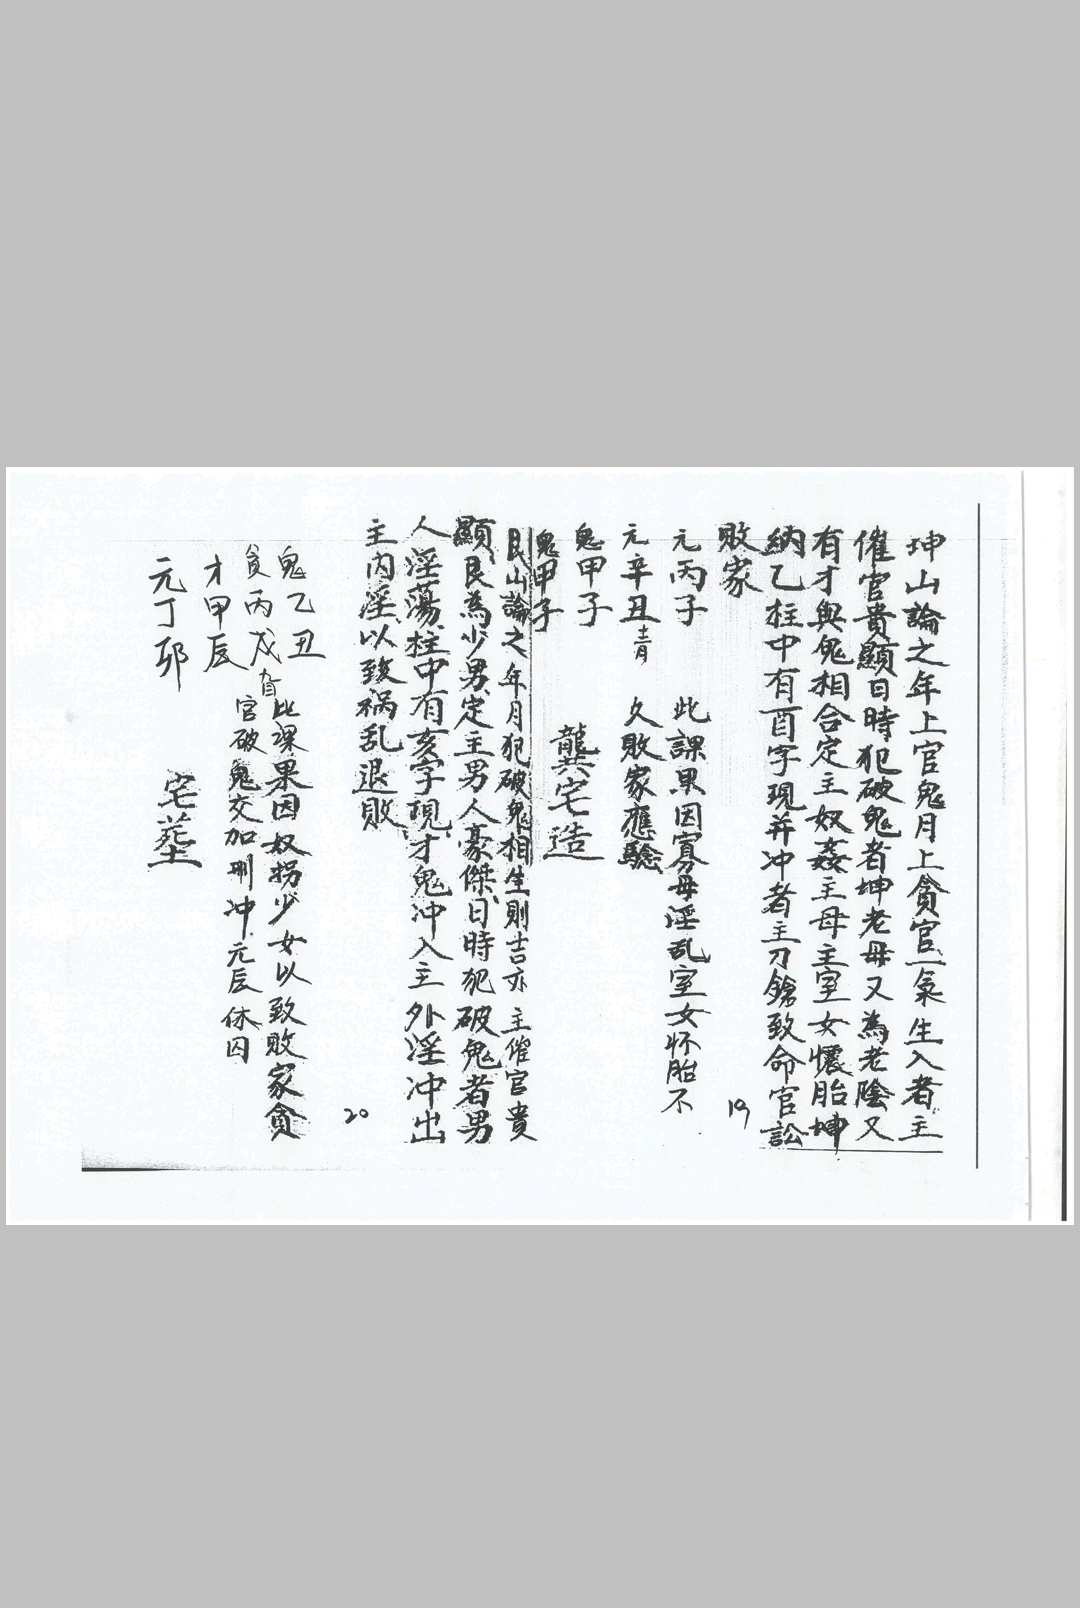 坤山論之年上官鬼月上貪官一氣生入者主
催官貴顯日時犯破鬼者坤老母又為老陰又
有才與鬼相合定主奴姦主母主室女懷胎坤
納乙柱中有酉字現并冲者主刀鎗致命官訟
敗家
19
元丙子 此課果因寡母淫乱室女怀胎不
元辛丑 久敗家應驗
鬼甲子
鬼甲子 龔宅造
艮山論之年月犯破鬼相生則吉亦主催官貴
顯艮為少男定主男人豪傑日時犯破鬼者男
人淫蕩柱中有亥字現才鬼冲入主外淫冲出
主内淫以致祸乱退敗
20
鬼乙丑 此課果因奴拐少女以致敗家貪
貪丙戌 官破鬼交加刑冲元辰休囚
才甲辰
元丁卯 宅塟